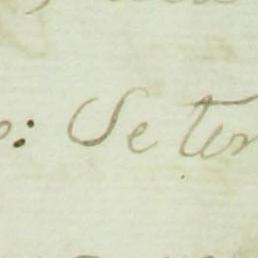 : Se ter